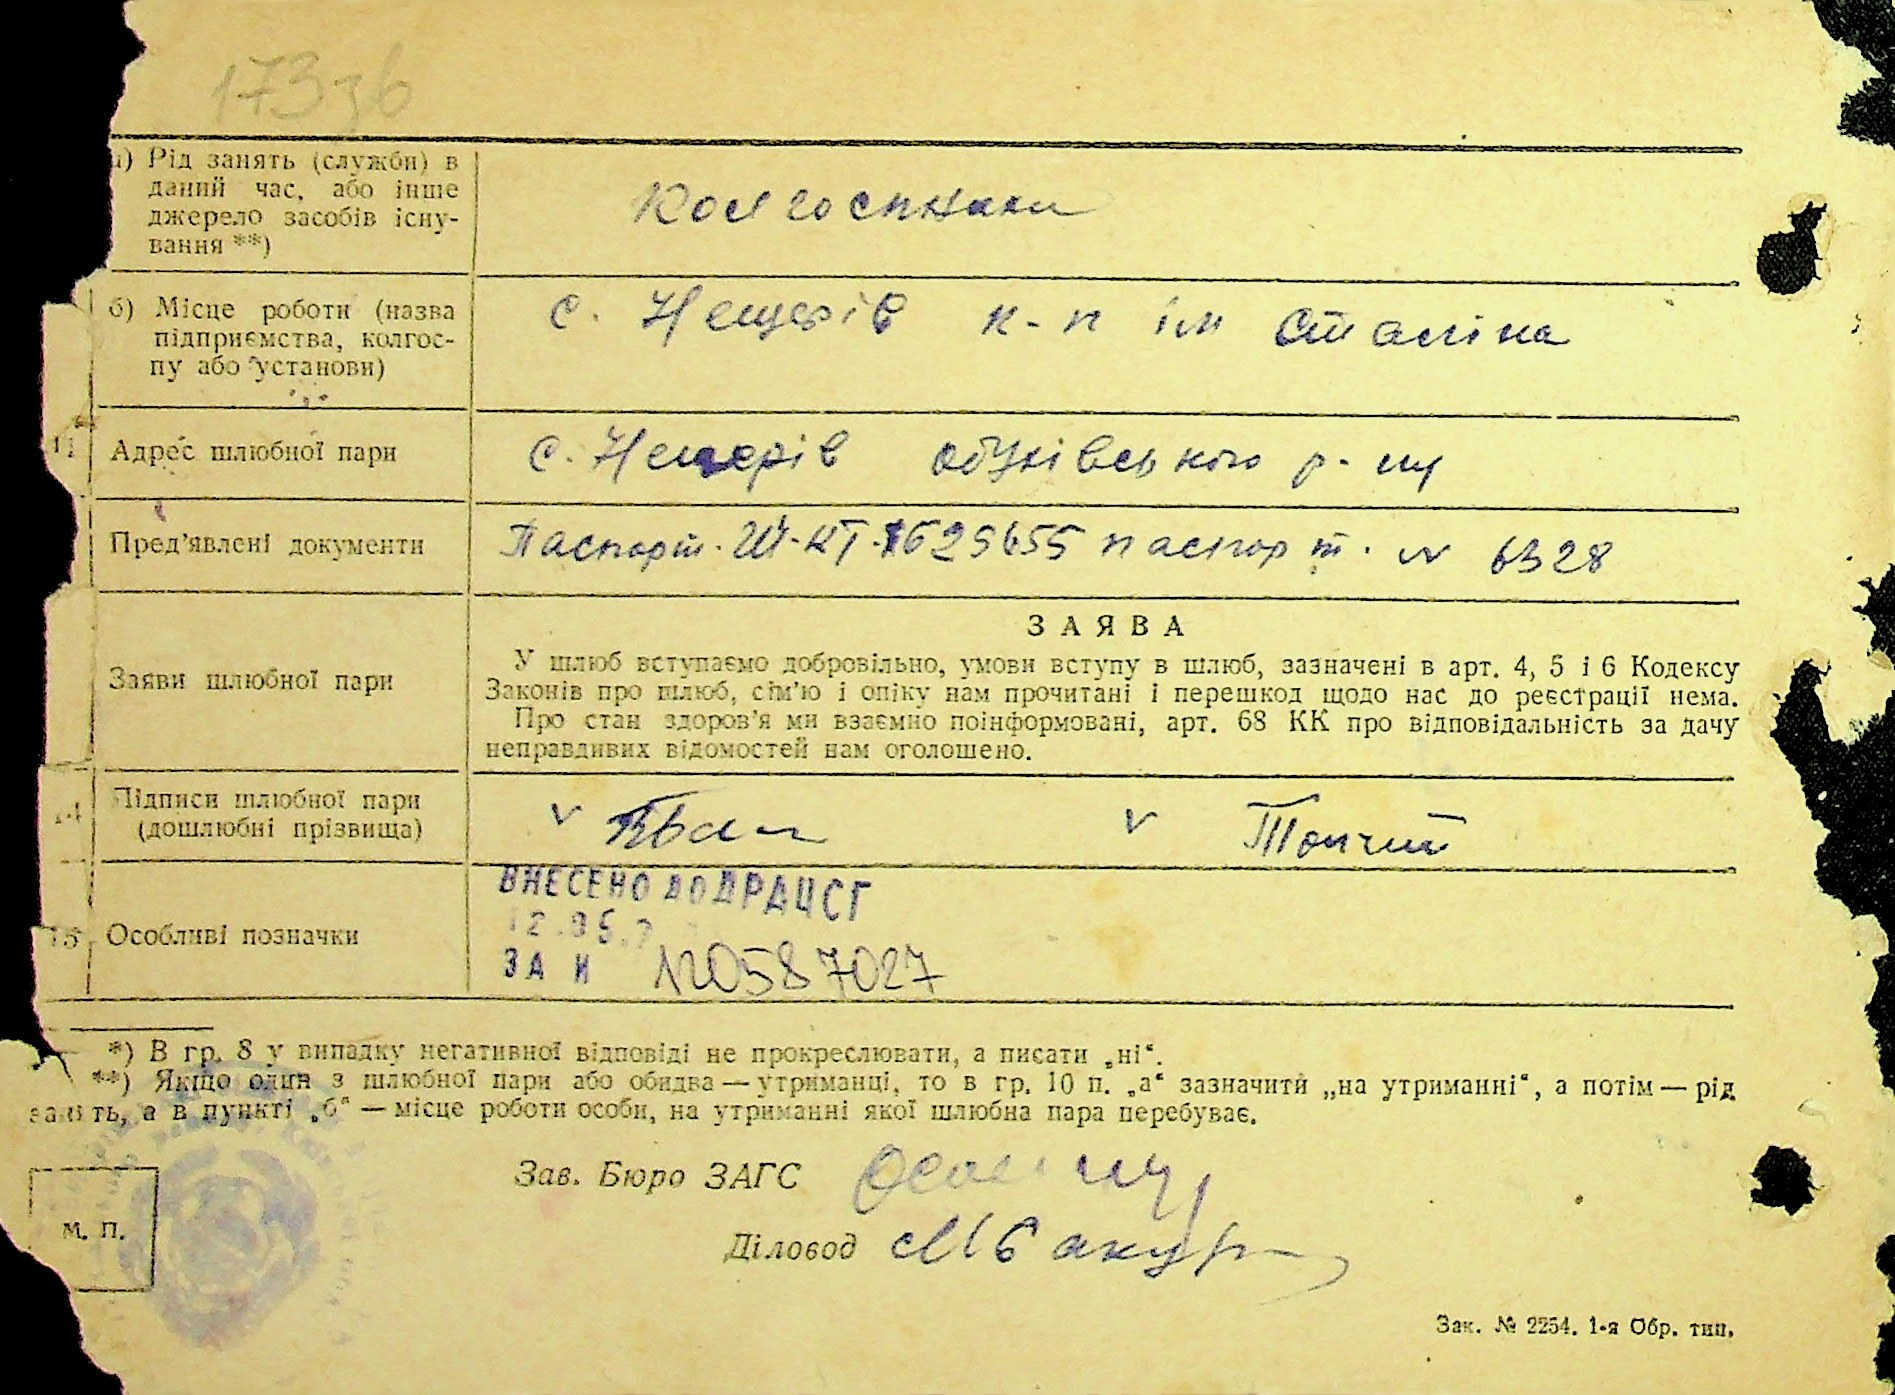 173зб
а) Рід занять (служби) в
даний час, або інше
джерело засобів існу-
вання **)
Колгоспники
б) Місце роботи (назва
підприємства, колгос-
пу або установи)
с. Нещерів к-п ім Сталіна
11 Адрес шлюбної пари
с. Нещерів Обухівського р-ну
Пред’явлені документи
Паспорт. Ш-КТ. 1625655 паспорт. № 6328
Заяви шлюбної пари
ЗАЯВА
У шлюб вступаємо добровільно, умови вступу в шлюб, зазначені в арт. 4, 5 і 6 Кодексу
Законів про шлюб, сім’ю і опіку нам прочитані і перешкод щодо нас до реєстрації нема.
Про стан здоров’я ми взаємно поінформовані, арт. 68 КК про відповідальність за дачу
неправдивих відомостей нам оголошено.
14 Підписи шлюбної пари
(дошлюбні прізвища)
v v Топчий
ВНЕСЕНО ДО ДРАЦСГ
15 Особливі позначки
ЗА N 120587027
*) В гр. 8 у випадку негативної відповіді не прокреслювати, а писати „ні“.
**) Якщо один з шлюбної пари або обидва — утриманці, то в гр. 10 п. „а“ зазначити „на утриманні“, а потім — рід
занять, а в пункті „б“ — місце роботи особи, на утриманні якої шлюбна пара перебуває.
Зав. Бюро ЗАГС
М. П.
Діловод
Зак. № 2254. 1-я Обр. тип.